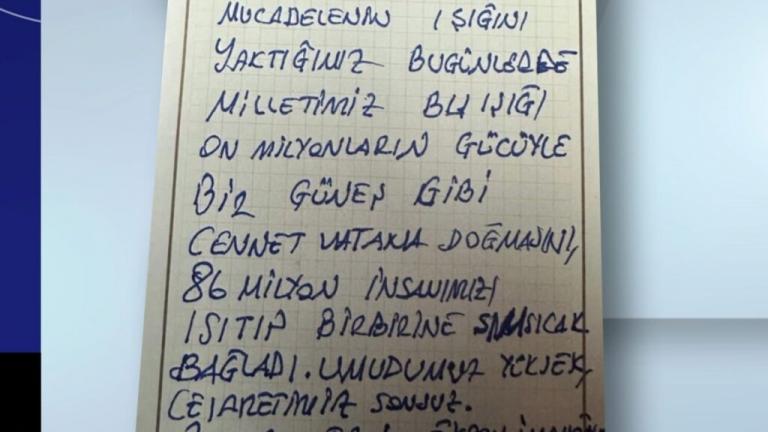 MÜCADELENİN IŞIĞINI
YAKTIĞIMIZ BUGÜNLERDE
MİLLETİMİZ BU IŞIĞI
ON MİLYONLARIN GÜCÜYLE
BİR GÜNEŞ GİBİ
CENNET VATANA DOĞMASINI,
86 MİLYON İNSANIMIZI
ISITIP BİRBİRİNE SIMSICAK
BAĞLADI. UMUDUMUZ YÜKSEK,
CESARETİMİZ SONSUZ.